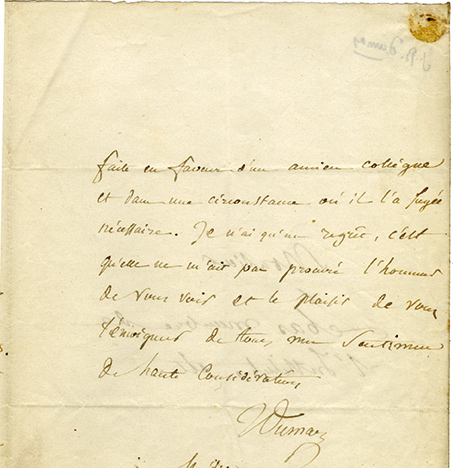 faite en faveur d'un ancien collègue
et dans une circonstance où il l'a jugée
nécessaire. Je n'ai qu'un regret, c'est
qu'elle ne m'ait pas procuré l'honneur
de vous voir et le plaisir de vous
témoigner de tous mes sentimens
de haute considération
Dumas